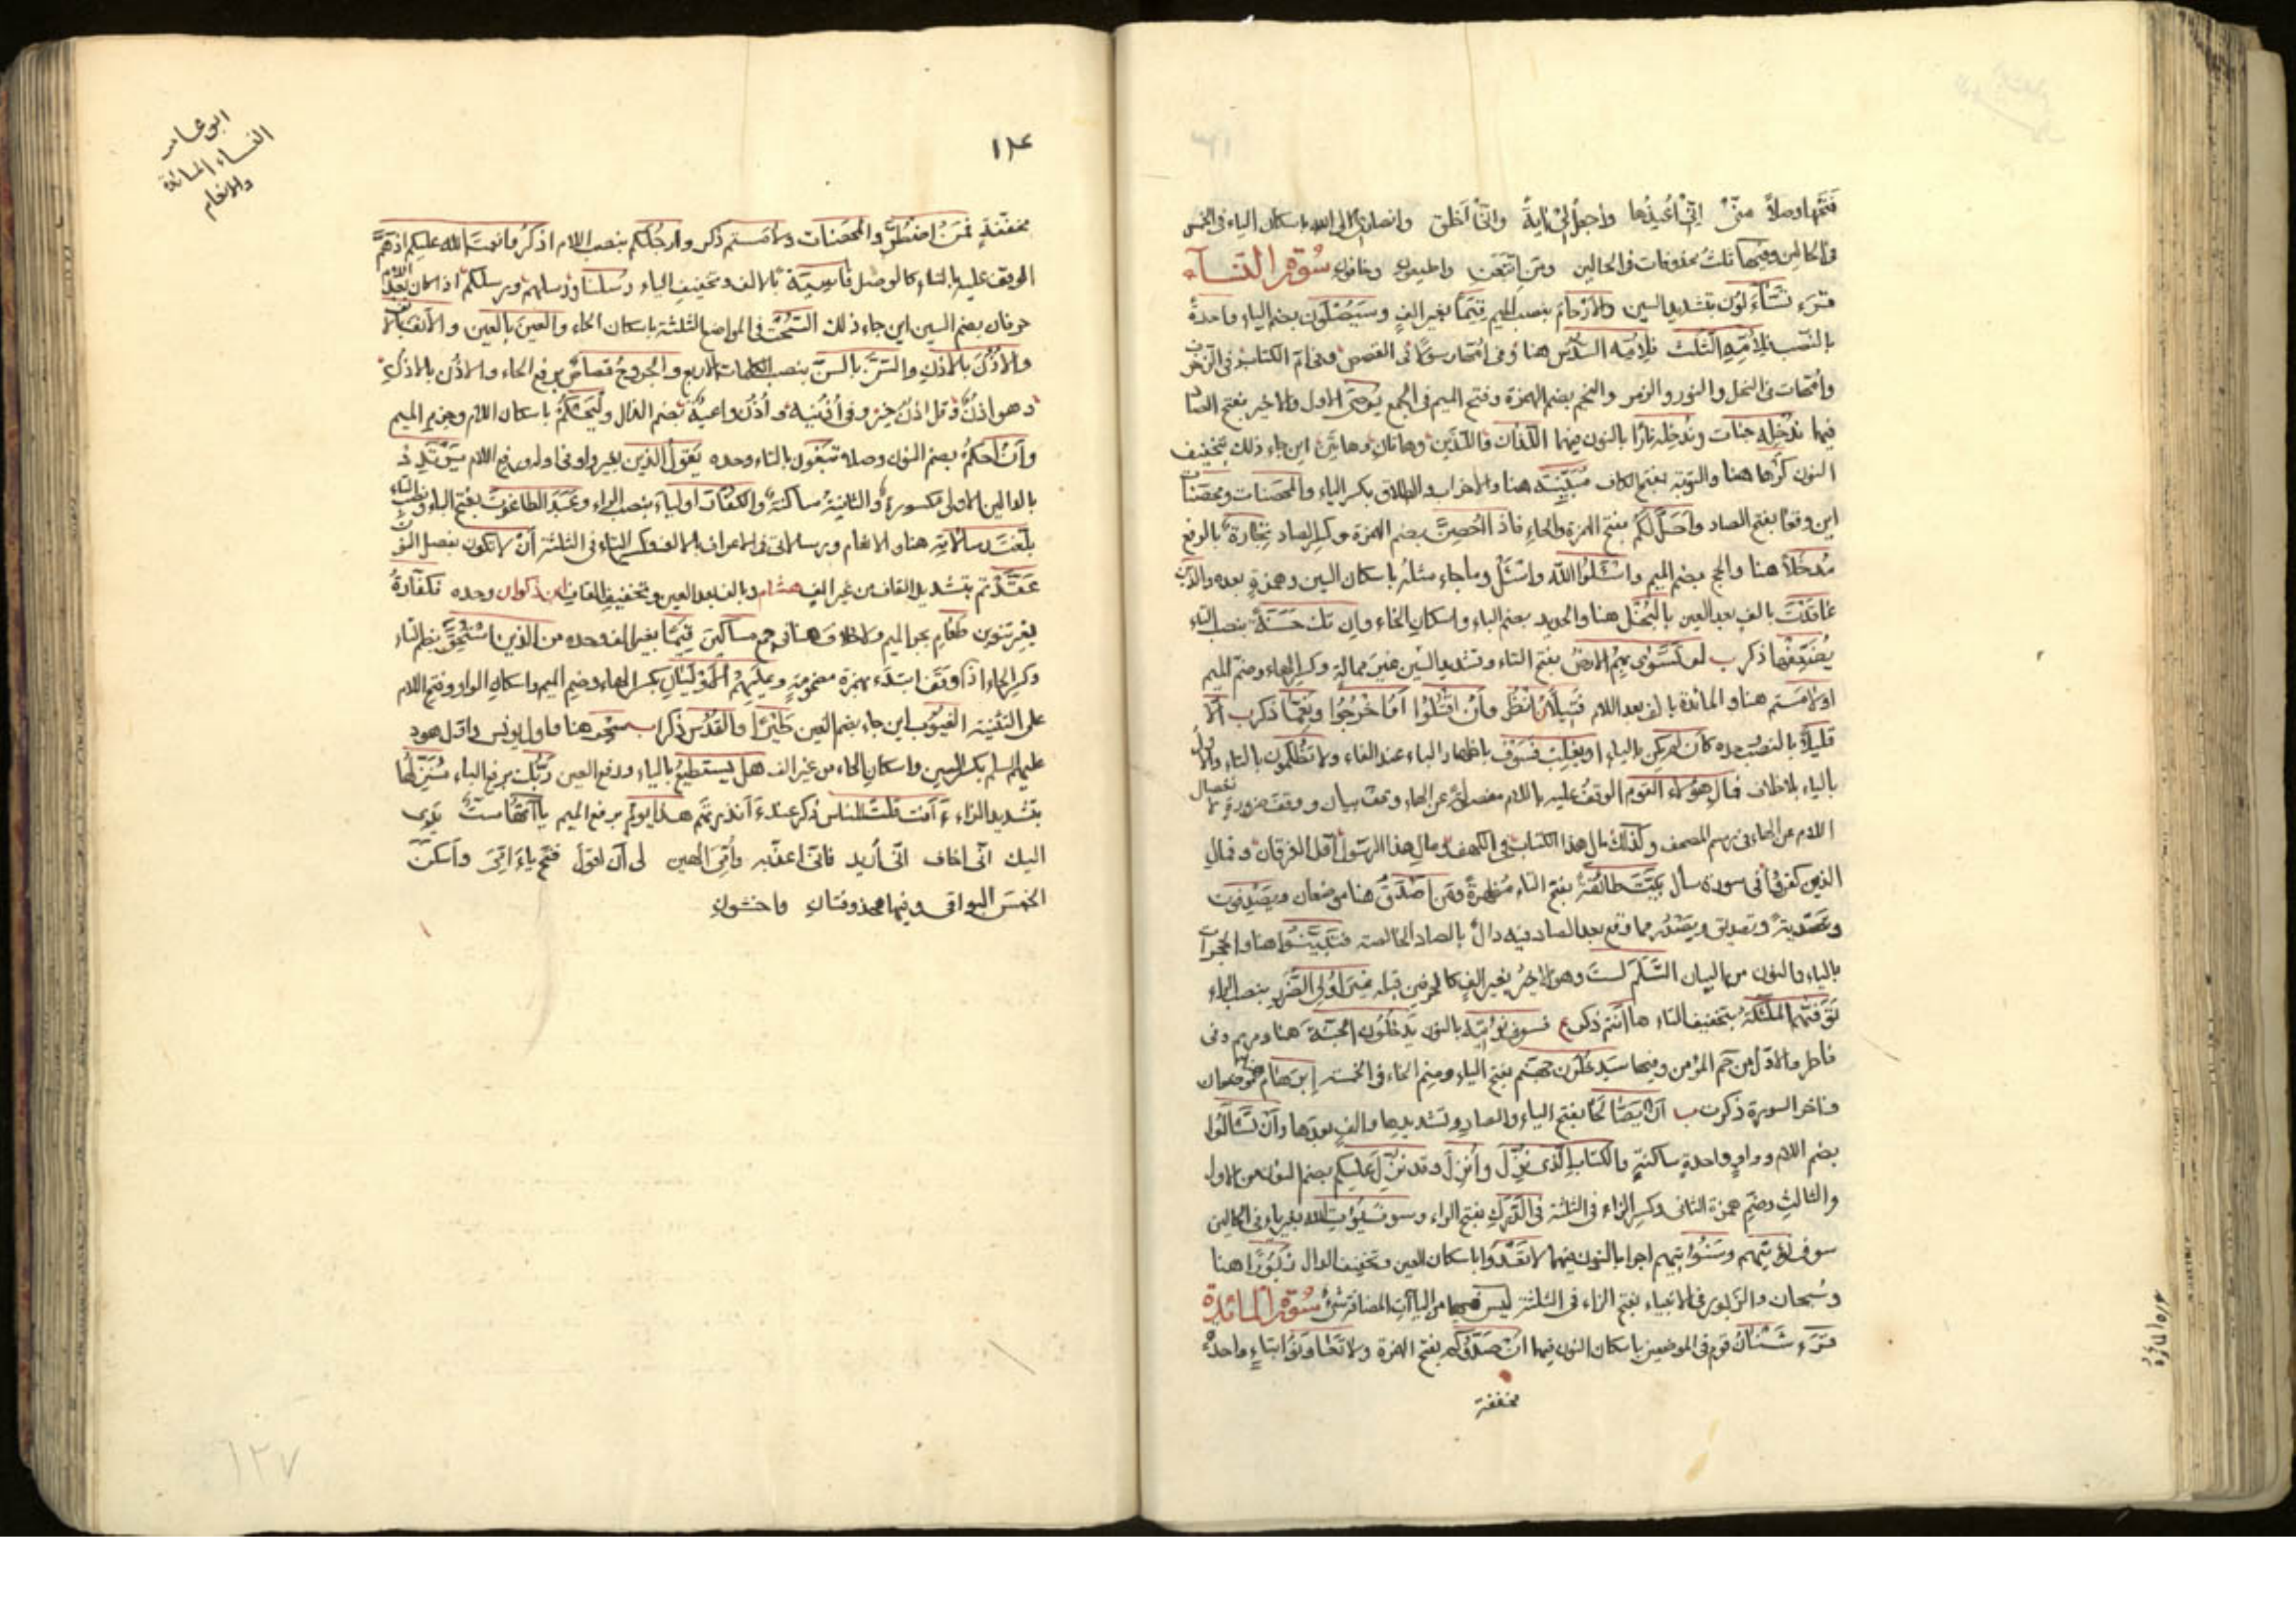 فتحها وصلا منّي إنّي أعيذها واجعل لي آية وأنّي أخلق وانصاري إلى الله باسكان الياء في الخمس
في الحالين وفيها ثلث محذوفات في الحالين ومن اتبعن واطيعون وخافون سورة النساء
قرء تسّاءلون بتشديد السين والأرحام بنصب الميم قيما بغير الف وسيصلون بضم الياء واحدة
بالنصب فلأمه الثلث فلأمه السدس هنا وفي امّها رسولا في القصص وفي ام الكتاب في الزخرف
وامهات في النحل والنور والزمر والنجم بضم الهمزة وفتح الميم في الجمع يوصى الاول والاخير بفتح الصاد
فيهما ندخله جنات وندخله نارا بالنون فيهما اللذان واللذين وهاتان وهاتين اين جاء ذلك بتخفيف
النون كرها هنا والتوبة بفتح الكاف مبيّنة هنا والاحزاب والطلاق بكسر الياء والمحصنات ومحصنات
اين وقعا بفتح الصاد وأحل لكم بفتح الهمزة والحاء فاذا أحصن بضم الهمزة وكسر الصاد تجارة بالرفع
مدخلا هنا والحج بضم الميم واسئلوا الله واسئل وما جاء مثله باسكان السين وهمزة بعده والذين
عاقدت بالف بعد العين بالبخل هنا والحديد بضم الباء واسكان الخاء وان تك حسنة بنصب التاء
يضعّفها ذكر ب لو تسّوّى بهم الارض بفتح التاء وتشديد السين غير ممالة وكسر الهاء وضم الميم
او لامستم هنا والمائدة بالف بعد اللام فتيلا انظر وأن اقتلوا أو اخرجوا ونعما ذكر ب الا
قليلا بالنصب وحده كان لم يكن بالياء او يغلب فسوف باظهار الباء عند الفاء ولا تظلمون بالتاء والاول
بالياء بلا خلاف فمال هؤلاء القوم الوقف عليه باللام مفصلة عن الهاء وقف بيان ووقف ضرورة لانفصال
اللام عن الهاء في رسم المصحف وكذلك مال هذا الكتاب في الكهف ومال هذا الرسول في الفرقان وفمال
الذين كفروا في سورة سأل بيّت طائفة بفتح التاء مظهرة ومن أصدق هنا موضعان ويصدفون
وتصدية وتصديق ويصدر مما وقع بعد الصاد فيه دال بالصاد الخالصة فتبيّنوا هنا والحجرات
بالياء والنون من البيان السلم لست وهو الاخير بغير الف كالحرفين قبله غير أولي الضرر بنصب الراء
توفّيهم الملئكة بتخفيف التاء ها أنتم ذكر ع فسوف نؤتيه بالنون يدخلون الجنة هنا ومريم وفي
فاطر والاول من حم المؤمن وفيها سيدخلون جهنم بفتح الياء وضم الخاء في الخمسة ابرهام موضعان
واخر السورة ذكرت ب أن يصّالحا بفتح الياء والصاد وتشديدها والف بعدها وان تسالوا
بضم اللام وواو واحدة ساكنة والكتاب الذي نزّل وأنزل وقد نزّل عليكم بضم النون من الاول
والثالث وضم همزة الثاني وكسر الزاء في الثلثة في الدرك بفتح الراء وسوف يؤت الله بغير ياء في الحالين
سوف نؤتيهم وسنؤتيهم اجرا بالنون فيهما لا تعدوا باسكان العين وتخفيف الدال زبورا هنا
وسبحان والزبور في الانبياء بفتح الزاء في الثلثة ليس فيها من الياآت المضافة شئ سورة المائدة
قرء شنئان قوم في الموضعين باسكان النون فيهما ان صدوكم بفتح الهمزة ولا تعاونوا بتاء واحدة
مخففة
ابو عامر
النساء المائدة
والانعام
مخففة فمن اضطر والمحصنات ولامستم ذكر وارجلكم بنصب اللام اذكروا نعمت الله عليكم اذهم
الوقف عليه بالتاء كالوصل قاسية بالالف وتخفيف الياء رسلنا ورسلهم ورسلكم اذا كان بعد اللام
حرفان بضم السين اين جاء ذلك السحت في المواضع الثلثة باسكان الحاء والعين بالعين والانف بالانف
والاذن بالاذن والسن بالسن بنصب الكلمات الاربع والجروح قصاص برفع الحاء والاذن بالاذن
وهو اذن وقل اذن خير وفي أذنيه وأذن واعية بضم الذال وليحكم باسكان اللام وجزم الميم
وأن احكم بضم النون وصلا تبغون بالتاء وحده يقول الذين بغير واو في اوله ورفع اللام من يرتدد
بالدالين الاولى مكسورة والثانية ساكنة والكفار اولياء بنصب الراء وعبد الطاغوت بفتح الباء ونصب التاء
بلّغت رسالاته هنا والانعام وبرسالاتي في الاعراف بالالف وكسر التاء في الثلثة أن لا تكون بنصب النون
عقّدتم بتشديد القاف من غير الف هشام وبالف بعد العين وتخفيف القاف ابن ذكوان وحده فكفارة
بغير تنوين طعام بجر الميم ولا خلاف هنا في جمع مساكين قيما بغير الف وحده من الذين استحق بضم التاء
وكسر الحاء اذا وقف ابتدء بهمزة مضمومة وعليهم الاوليان بكسر الهاء وضم الميم واسكان الواو وفتح اللام
على التثنية الغيوب اين جاء بضم الغين طيرا والقدس ذكرا سحر هنا واول يونس واول هود
عليهم السلم بكسر السين واسكان الحاء من غير الف هل يستطيع بالياء ورفع العين ربّك برفع الباء منزّلها
بتشديد الزاء ءأنت قلت للناس ذكر عند ءأنذرتهم هذا يوم برفع الميم ياآتها ست يدي
اليك اني اخاف اني أريد فاني اعذبه وأمي الهين لي أن اقول فتح ياء امي وأسكن
الخمس البواقي وفيها محذوفتان واخشون
١٣٧